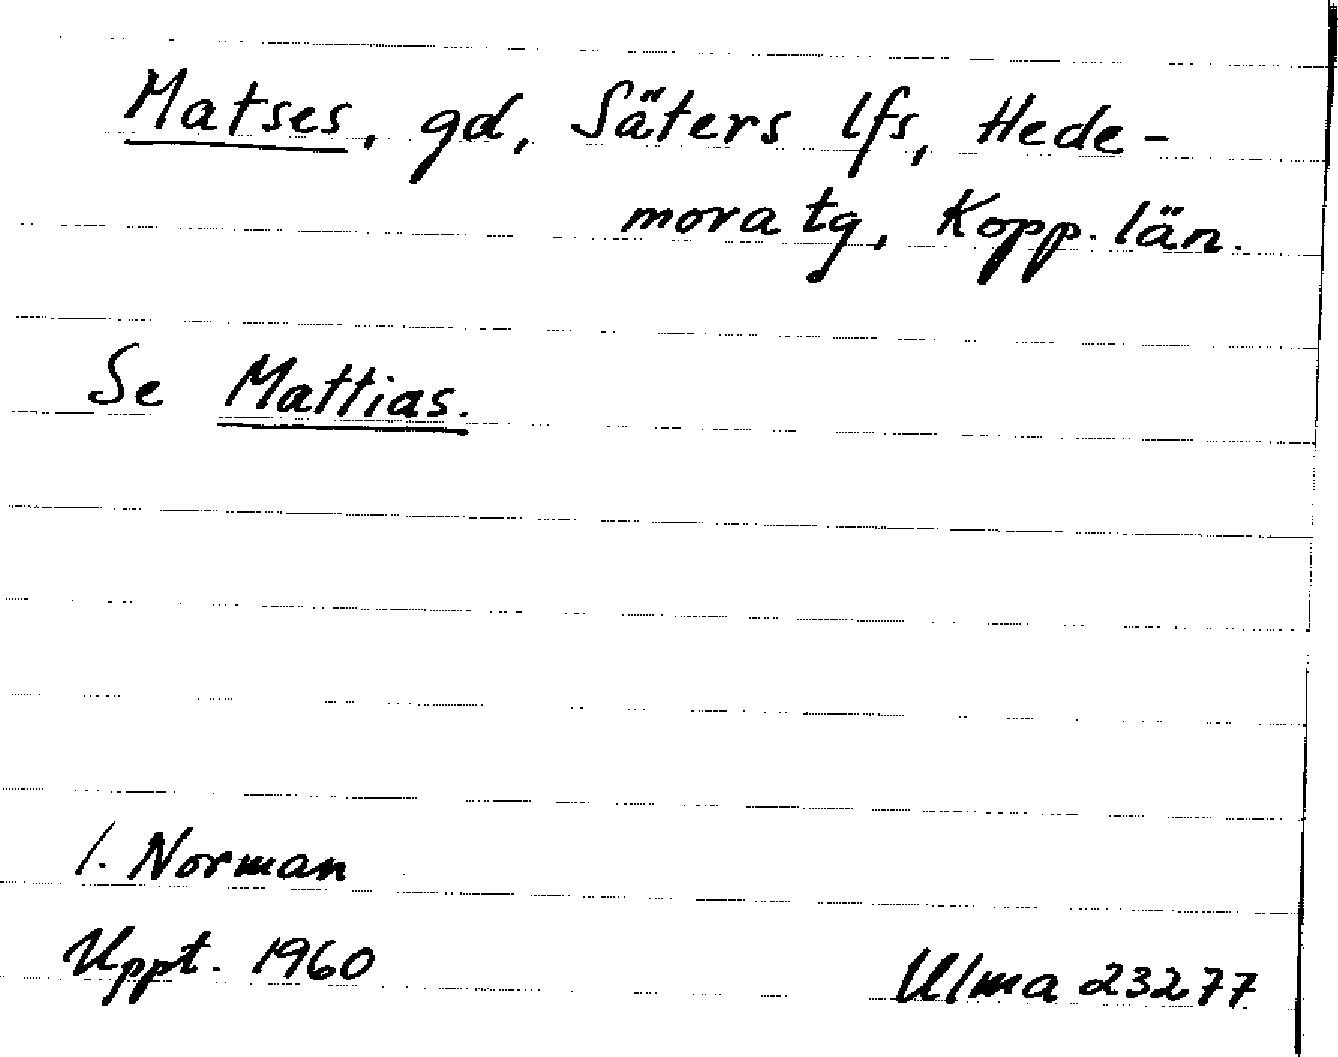 Matses, gd, Säters lfs, Hede-
mora tg, Kopp. län.
Se Mattias.
I. Norman
Uppt. 1960
Ulma 23277